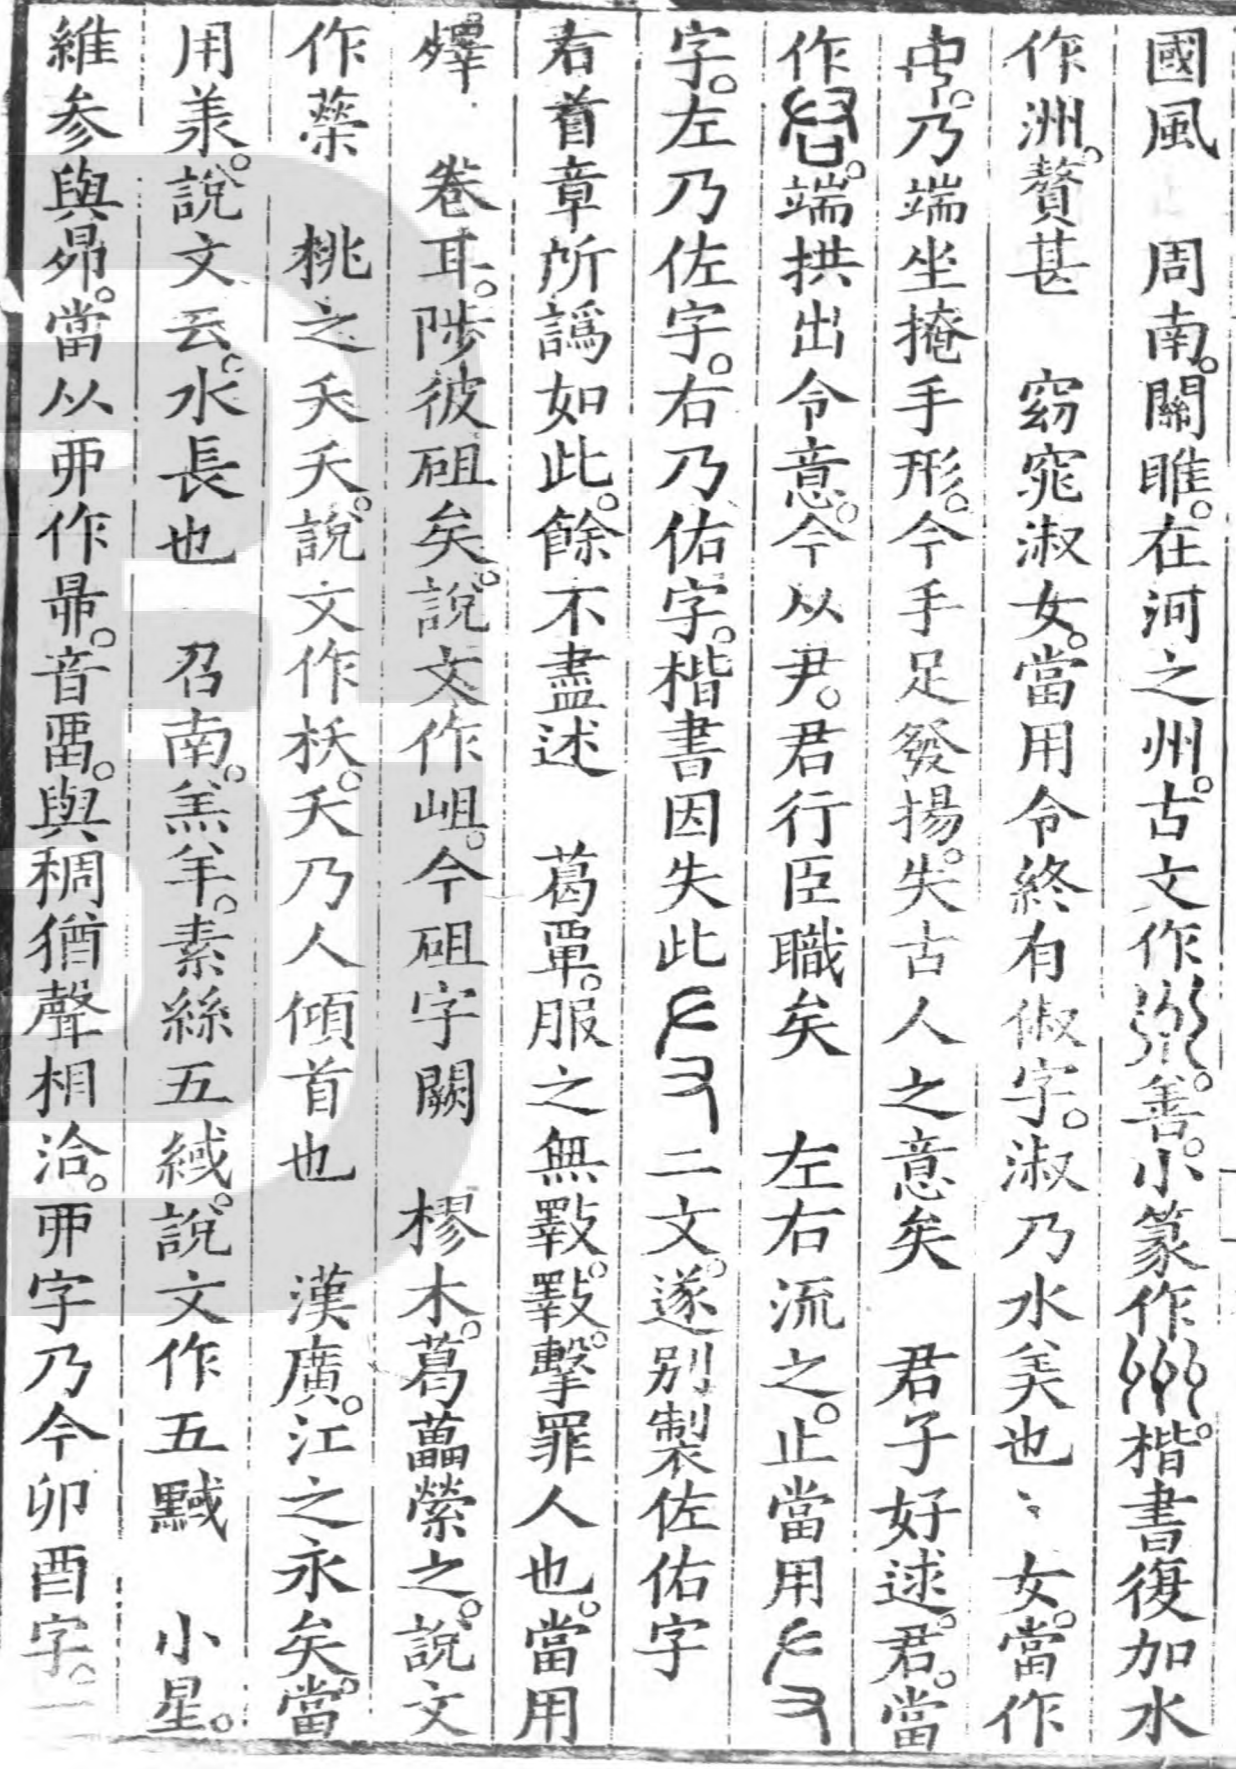 國風　周南。關雎。在河之州。古文作。善。小篆作。楷書復加水
作洲。贅甚　窈窕淑女。當用令終有俶字。淑乃水美也〻女。當作
。乃端坐掩手形。今手足發揚。失古人之意矣　君子好逑。君。當
作。端拱出令意。今从尹。君行臣職矣　左右流之。止當用𠂇又
字。左乃佐字。右乃佑字。楷書因失此𠂇又二文。遂別製佐佑字
右首章所譌如此。餘不盡述　葛覃。服之無斁。斁。擊罪人也。當用
燡　卷耳。陟彼砠矣。說文作岨。今砠字闕　樛木。葛藟縈之。說文
作蘂　桃之夭夭。說文作枖。夭乃人傾首也　漢廣。江之永矣。當
用羕。說文云。水長也　召南。羔羊。素絲五緎。說文作五黬　小星。
維參與昴。當从丣作。音畱。與稠猶聲相洽。丣字乃今卯酉字。一